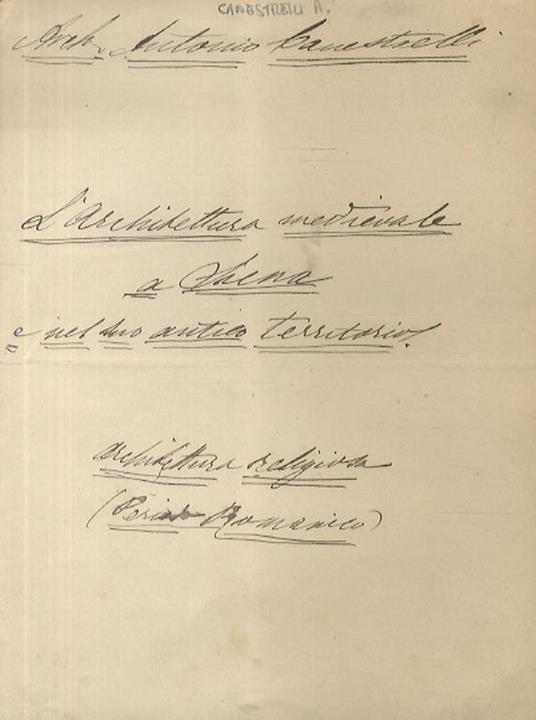 CANESTRELLI A.
Arch. Antonio Canestrelli
L'Architettura medievale
a Siena
e nel suo antico territorio.
Architettura religiosa
(Period Romanico)